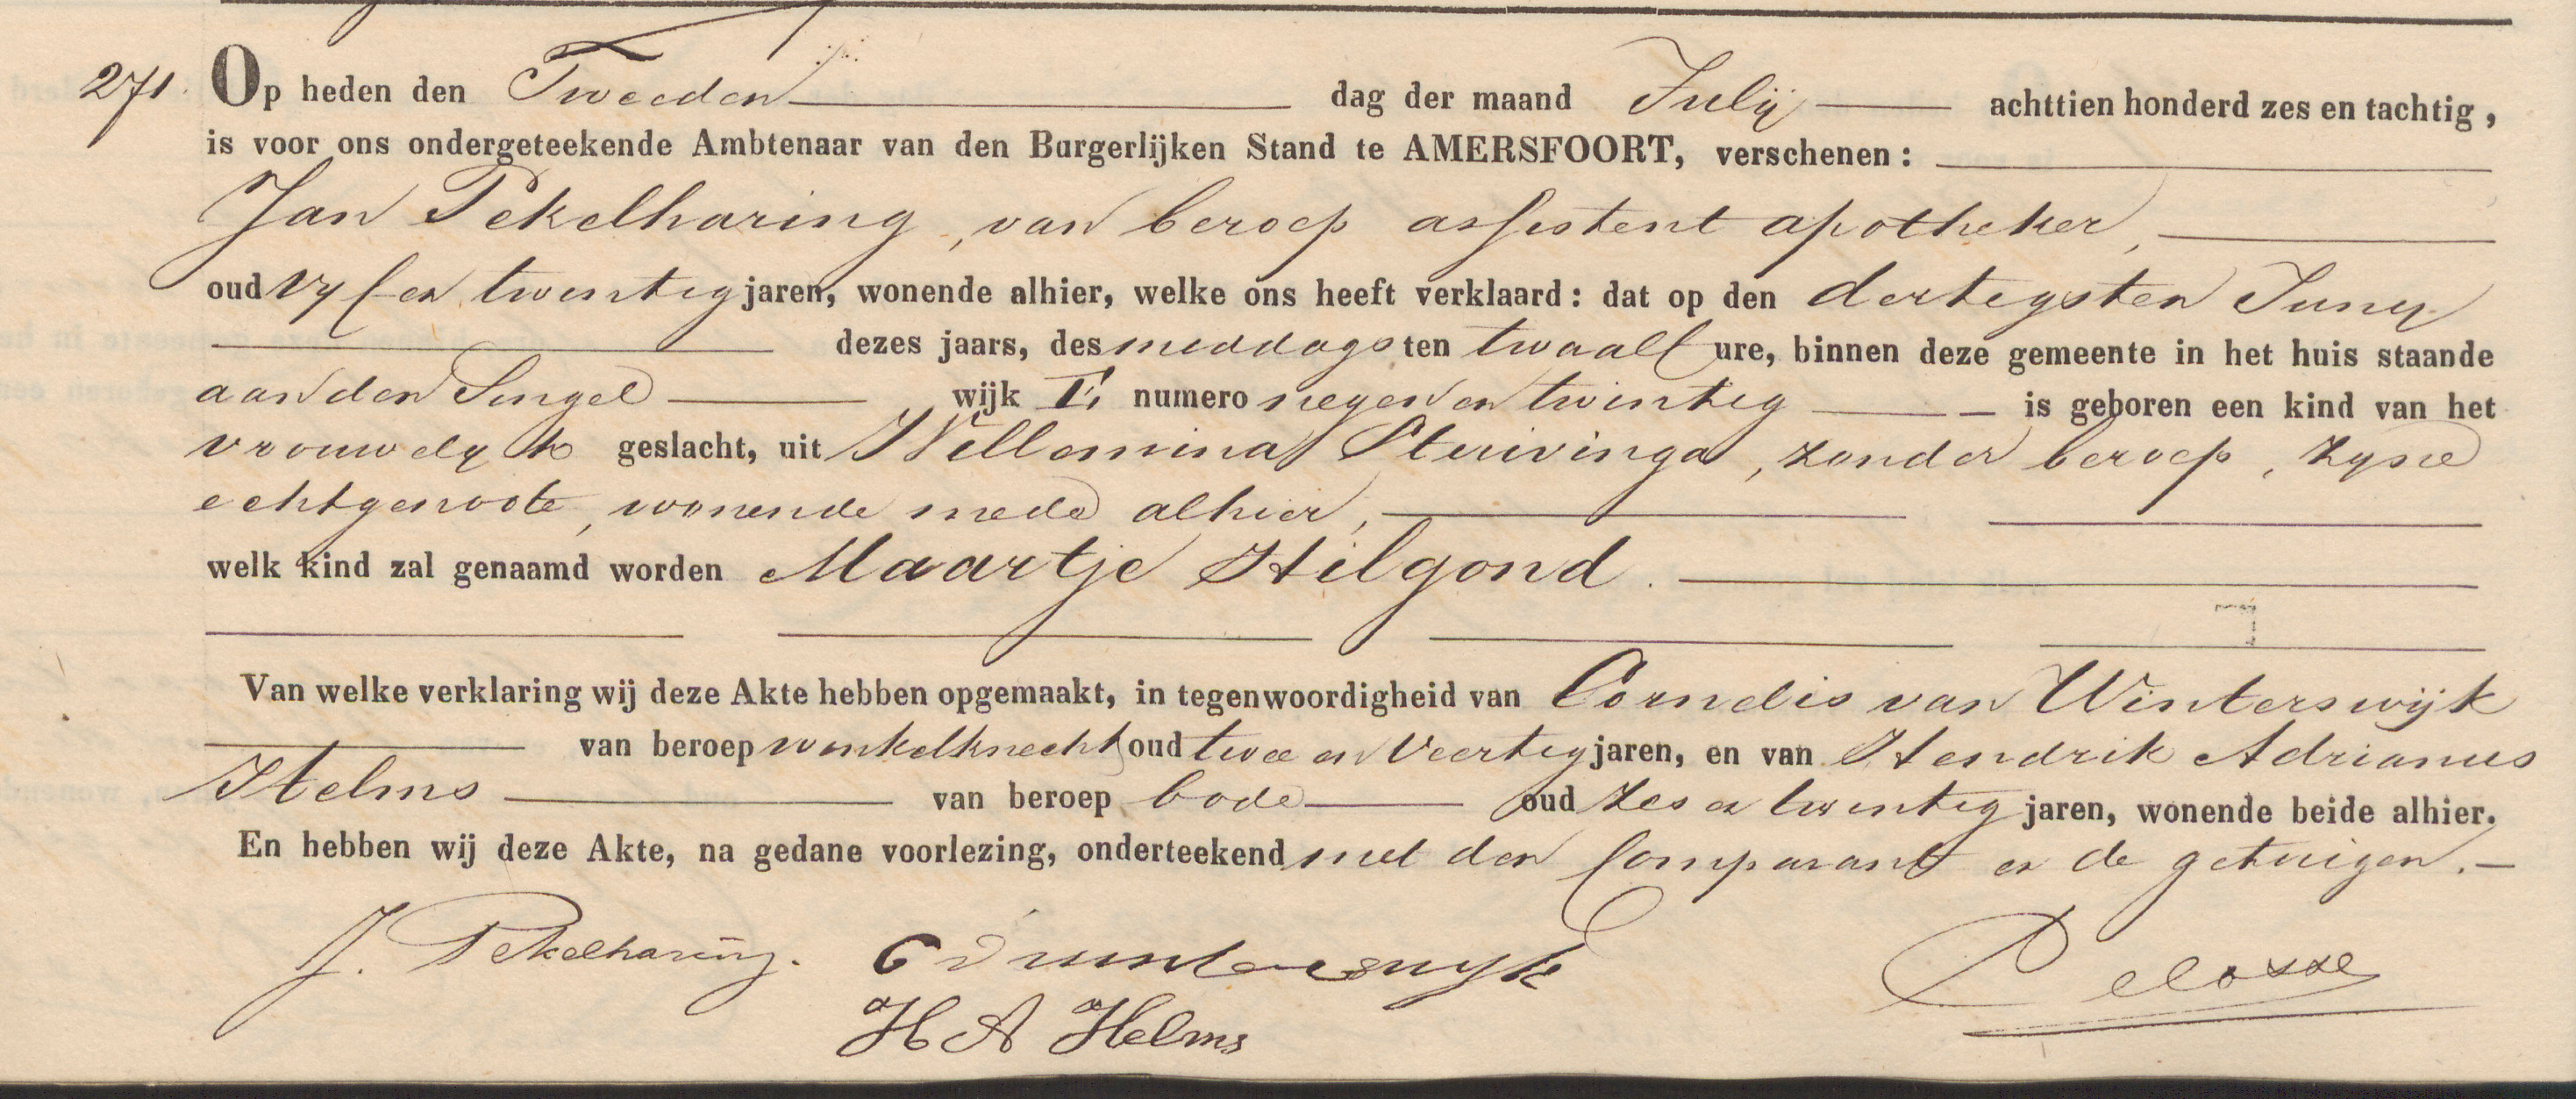 271. Op heden den Tweeden dag der maand Julij achttien honderd zes en tachtig,
is voor ons ondergeteekende Ambtenaar van den Burgerlijken Stand te AMERSFOORT, verschenen:
Jan Pekelharing, van beroep assistent apotheker,
oud vyf en twintig jaren, wonende alhier, welke ons heeft verklaard: dat op den dertigsten Juny
dezes jaars, des middags ten twaalf ure, binnen deze gemeente in het huis staande
aan den Singel wijk E, numero negen en twintig is geboren een kind van het
vrouwelyk geslacht, uit Willemina Stuivinga, zonder beroep, zyne
echtgenoote, wonende mede alhier,
welk kind zal genaamd worden Maartje Hilgond.
Van welke verklaring wij deze Akte hebben opgemaakt, in tegenwoordigheid van Cornelis van Winterswijk
van beroep winkelknecht oud twee en veertig jaren, en van Hendrik Adrianus
Helms van beroep bode oud zes en twintig jaren, wonende beide alhier.
En hebben wij deze Akte, na gedane voorlezing, onderteekend met den Comparant en de getuigen.
J. Pekelharing. C v Winterswyk
H A Helms